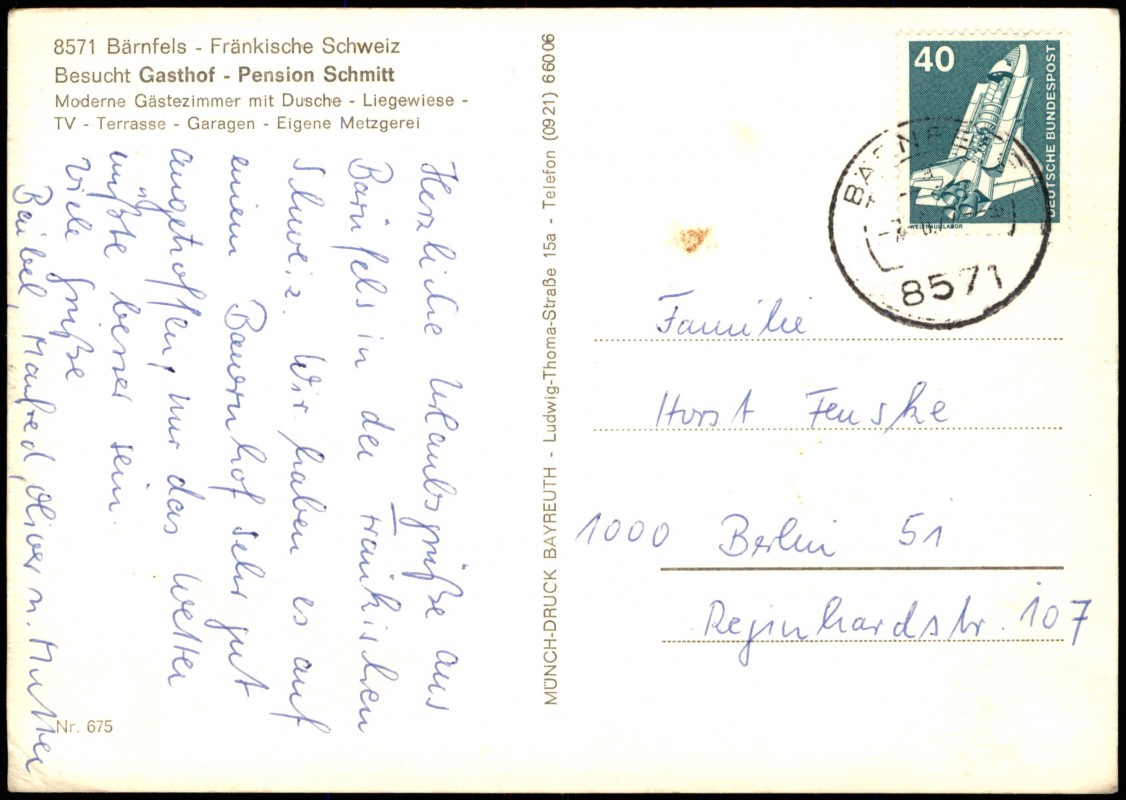 8571 Bärnfels - Fränkische Schweiz
Besucht Gasthof - Pension Schmitt
Moderne Gästezimmer mit Dusche - Liegewiese -
TV - Terrasse - Garagen - Eigene Metzgerei
Herzliche Urlaubsgrüße aus
Bärnfels in der Fränkischen
Schweiz. Wir haben es auf
einem Bauernhof sehr gut
angetroffen, nur das Wetter
müßte besser sein.
Viele Grüße
Bärbel, Manfred, Oliver u. Mutter
Nr. 675
MÜNCH-DRUCK BAYREUTH - Ludwig-Thoma-Straße 15a - Telefon (09 21) 6 60 06
40
DEUTSCHE BUNDESPOST
WELTRAUMLABOR
8571
Familie
Horst Fenske
1000 Berlin 51
Reginhardstr. 107